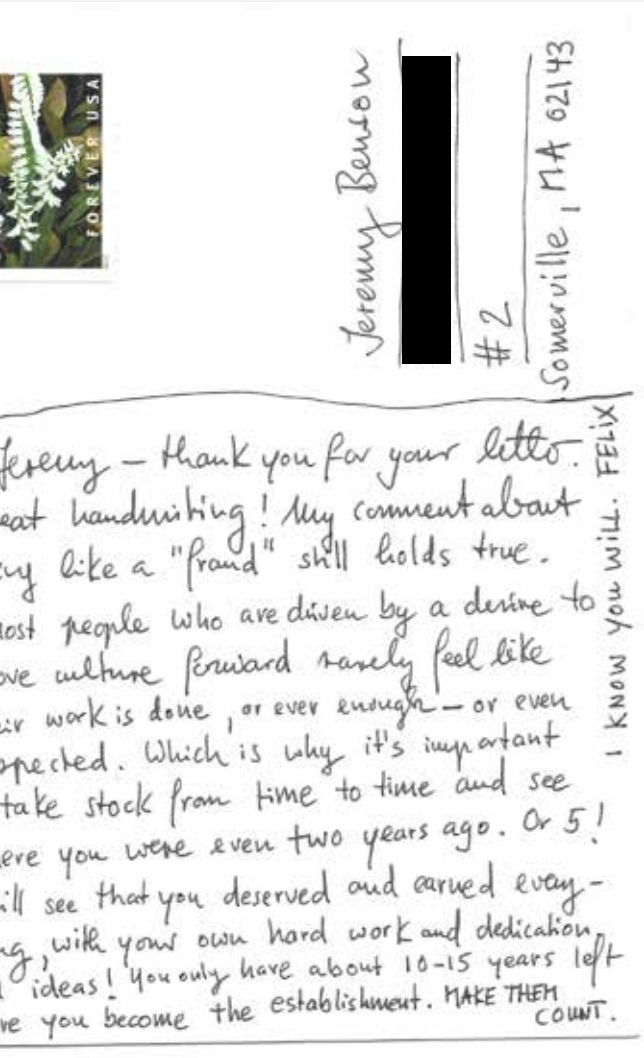 FOREVER USA
Jeremy Benson
#2
Somerville, MA 02143
Jeremy — thank you for your letter.
eat handwriting! My comment about
ng like a "fraud" still holds true.
ost people who are driven by a desire to
ove culture forward rarely feel like
eir work is done, or ever enough — or even
spected. Which is why it's important
take stock from time to time and see
ere you were even two years ago. Or 5!
ill see that you deserved and earned every-
ng, with your own hard work and dedication,
ideas! You only have about 10-15 years left
re you become the establishment. MAKE THEM
COUNT.
I KNOW YOU WILL. FELIX